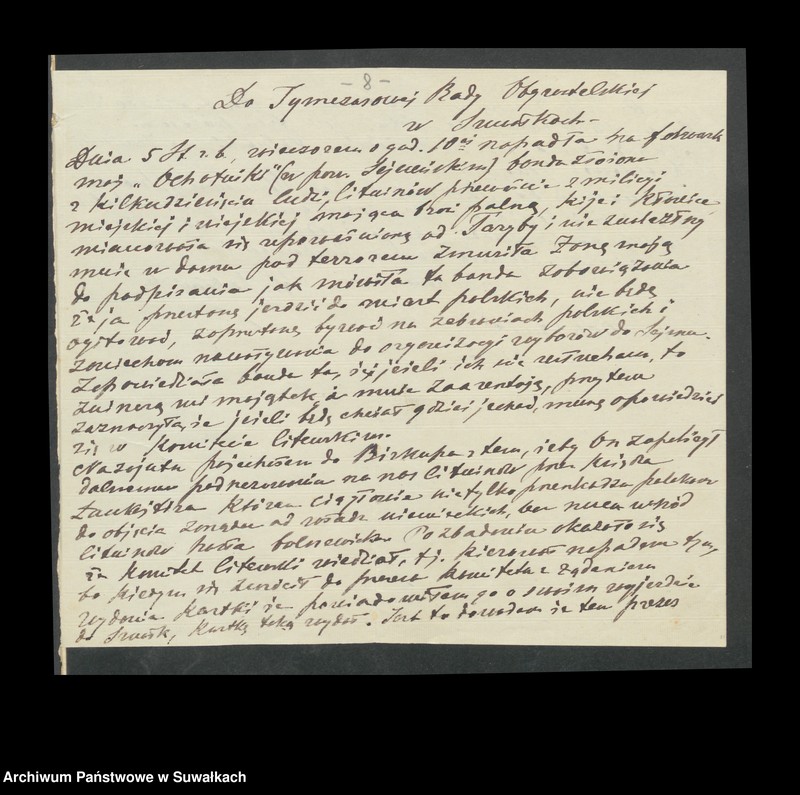 -8-
Do Tymczasowej Rady Obywatelskiej
w Suwałkach.
Dnia 5 st r. b. wieczorem o god. 10ej napadła na folwark
mój „Ochotniki" (w pow. Sejneńskim) banda złożona
z kilkudziesięciu ludzi, litwinów przeważnie z milicji
miejskiej i wiejskiej mająca broń palną, kije i kłonice,
mianowała się upoważnioną od Taryby i nie zastawszy
mnie w domu pod terrorem zmusiła żonę moją
do podpisania jak mówiła ta banda zobowiązania
że ja przestanę jeździć do miast polskich, nie będę
agitować, zaprzestanę bywać na zebraniach polskich i
zaniecham nawoływania do organizacji wyborów do Sejmu.
Zapowiedziała banda ta, iż jeżeli ich nie usłucham, to
zabiorą mi majątek, a mnie zaaresztują, przytem
zaznaczyła, że jeżeli będę chciał gdzieś jechać, muszę opowiedzieć
się w Komitecie litewskim.
Nazajutrz pojechałem do Biskupa z tem, żeby On zapobiegł
dalszemu podszczuwaniu na nas litwinów przez księdza
która ciągłemi nietylko przeszkadza polakom
do objęcia zarządu od władz niemieckich, ale wśród
litwinów hasła bolszewickie. Po zbadaniu okazało się
że Komitet litewski wiedział, t.j. kierował napadem tym,
bo kiedym się zwrócił do prezesa Komitetu z żądaniem
wydania kartki, że powiadomiłem go o swoim wyjeździe
do Suwałk, kartkę taką wydał. Jest to dowodem że ten prezes
Archiwum Państwowe w Suwałkach